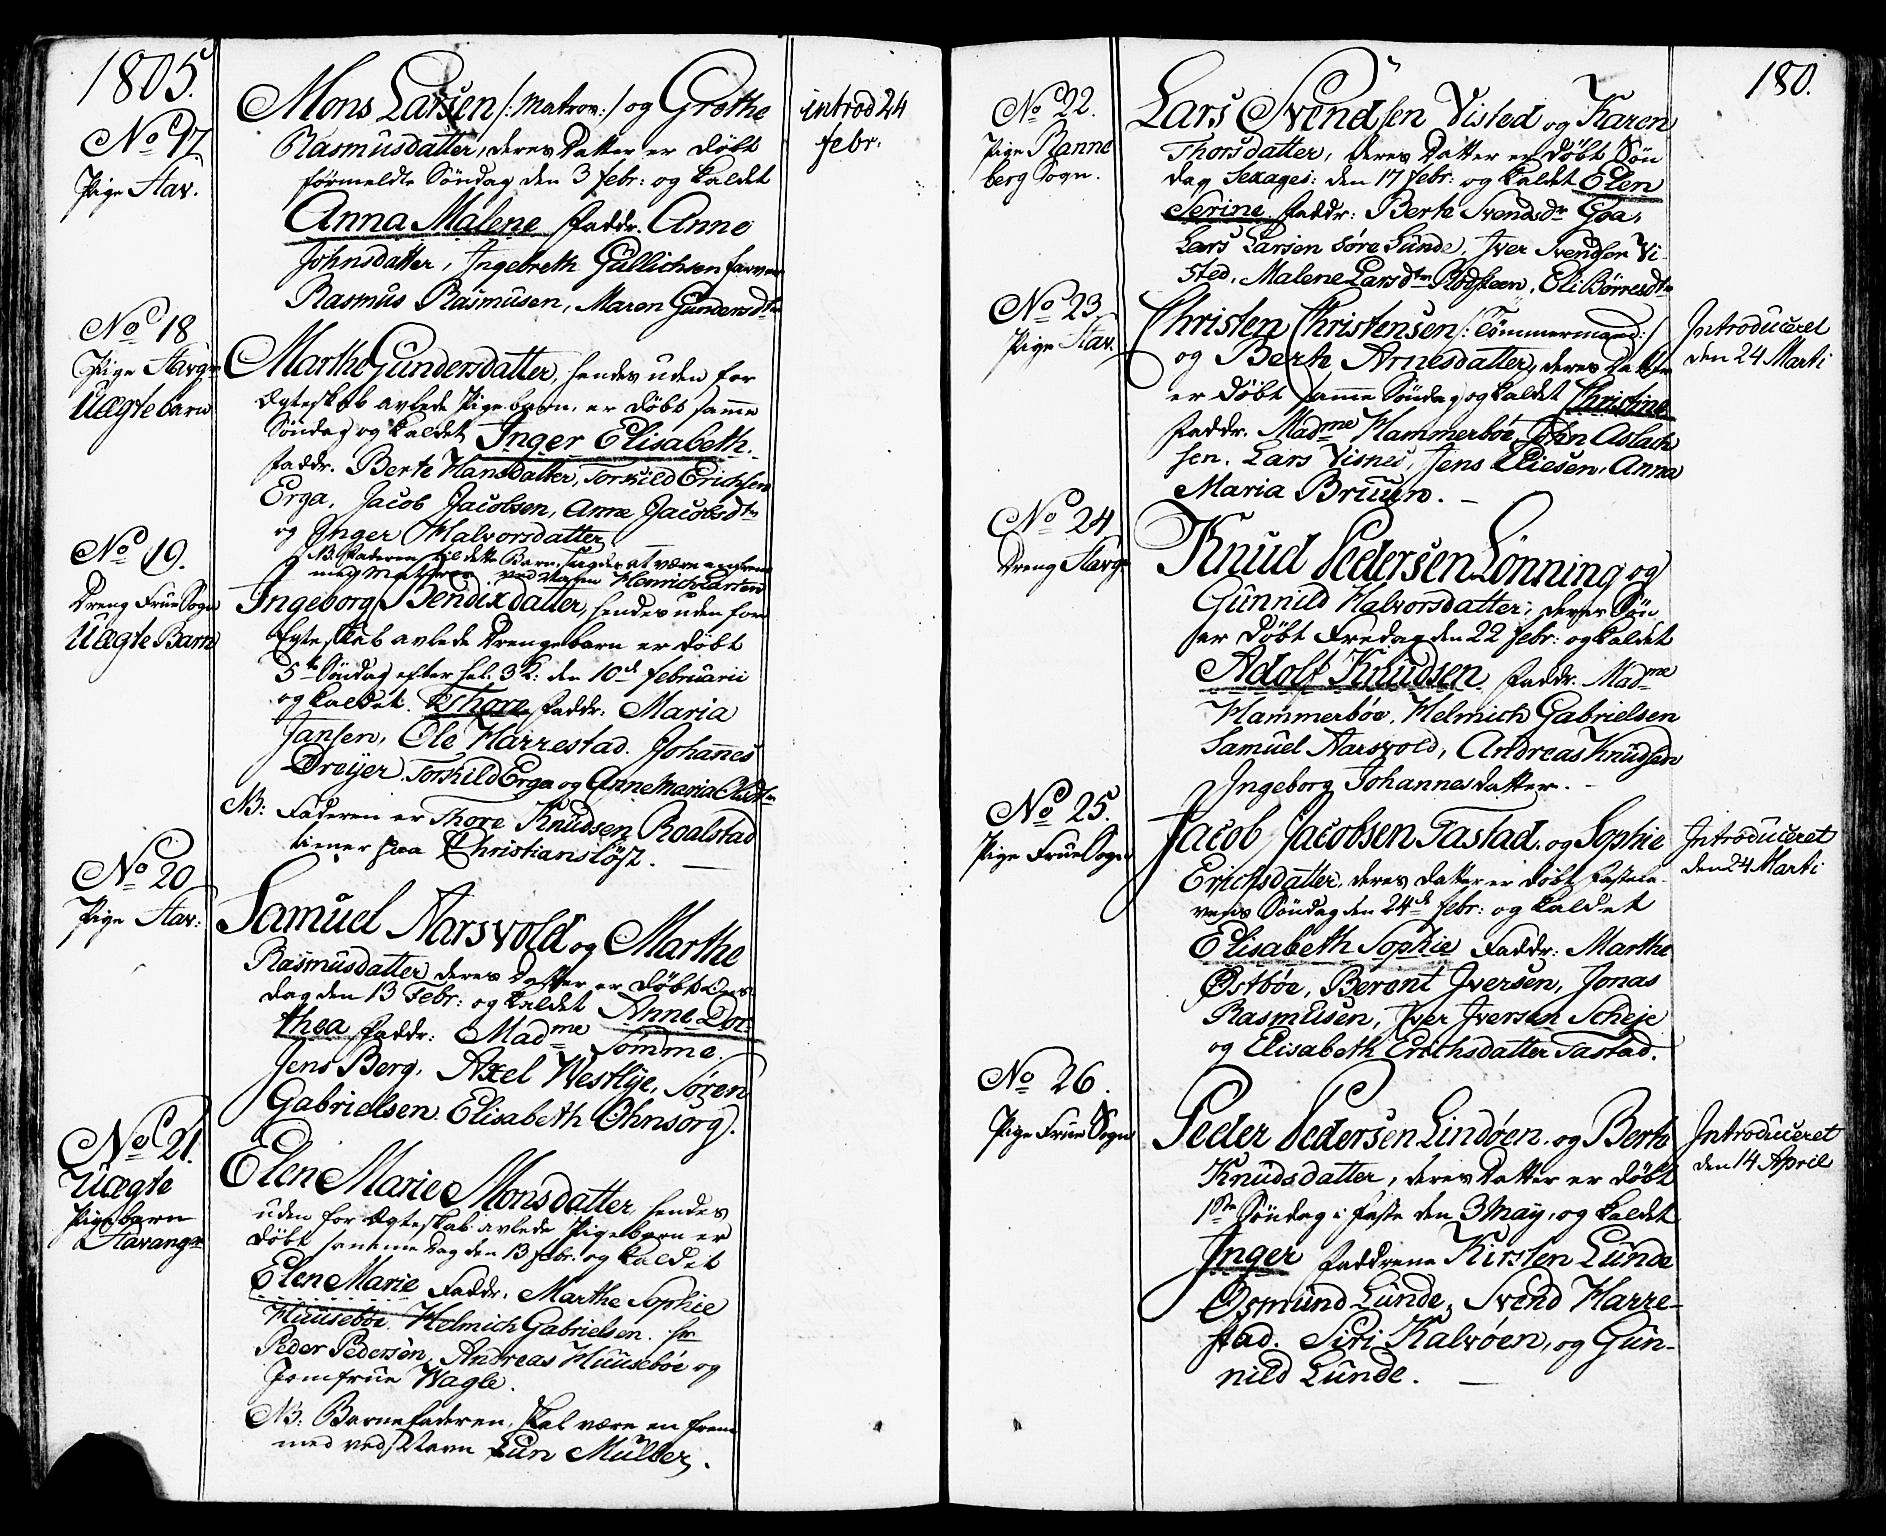 1805.
No 17.
Pige Stav.
Mons Larsen /: Matros: / og Grethe
Rasmusdatter, deres Datter er døbt
førmeldte Søndag den 3 febr: og kaldet
Anna Malene Faddr. Anne
Johnsdatter, Ingebreth Gullichsen farver
Rasmus Rasmusen, Maren Gundersdtr
introd 24
febr:
No 18
Pige Stavgr
Uægte barn
Marthe Gundersdatter, hendes uden for
Ægteskab avlede Pigebarn, er døbt samme
Søndag og kaldet Inger Elisabeth.
Faddr. Berte Hansdatter, Torkild Erichsen
Erga, Jacob Jacobsen, Anne Jacobsdtr
og Inger Halvorsdatter
NB. Faderen til dette Barn, siges at være en frem
med Matros ved Navn Henrich Larsen
No 19.
Dreng Frue Sogn
Uægte Barn
Ingeborg Bendixdatter, hendes uden for
Egteskab avlede Drengebarn er døbt
5te Søndag efter hel. 3 K: den 10de februarii
og kaldet. Thore Faddr: Maria
Jansen, Ole Harrestad. Johannes
Dreyer. Torkild Erga og Anne Maria
NB: Faderen er Thore Knudsen Roalstad
tiener paa Christianslÿst.
No 20
Pige Stav:
Samuel Aarsvold og Marthe
Rasmusdatter deres Datter er døbt Ons
dag den 13 Febr: og kaldet Anne Dor-
thea Faddr: Madme Tomme.
Jens Berg, Axel Westlye, Søren
Gabrielsen. Elisabeth Ohnsorg.
No 21.
Uægte
Pigebarn
Stavanger
Elen Marie Monsdatter hendes
uden for Ægteskab avlede Pigebarn er
døbt samme Dag den 13 febr: og kaldet
Elen Marie Faddr. Marthe Sophie
Huusebøe. Helmich Gabrielsen. hr
Peder Pedersøn, Andreas Huusebøe og
Jomfrue Wagle.
NB: Barnefaderen, skal være en frem
med ved Navn Lun Mülber.
180.
No 22.
Pige Ranne
berg Sogn.
Lars Svendsen Visted og Karen
Thorsdatter, deres Datter er døbt Søn
dag Sexages: den 17 febr: og kaldet Elen
Serine. Faddr: Berte Svendsdr Goa,
Lars Larsen Søre Sunde, Iver Svendsen Vi-
sted, Malene Larsdtr Rødsteen, Eli Børresdtr
No 23
Pige Stav.
Christen Christensen /: Tømmermand: /
og Berte Arnesdatter, deres Datter
er døbt samme Søndag og kaldet Christine
Faddr. Madme Hammerbøe, John Aslach
sen. Lars Visnes, Jens Eliesen, Anna
Maria Bruun.
Introduceret
den 24 Marti
No 24
Dreng Stavgr
Knud Pedersen Lønning og
Gunnild Halvorsdatter, deres Søn
er døbt Fredag den 22 febr: og kaldet
Adolf Knudsen. Faddr. Madme
Hammerbøe, Helmich Gabrielsen
Samuel Aarsvold, Andreas Knudsen
Ingeborg Johannesdatter.
No 25.
Pige Frue Sogn
Jacob Jacobsen Tastad. og Sophie
Erichsdatter, deres Datter er døbt Fastela
vens Søndag den 24de febr: og kaldet
Elisabeth Sophie Faddr: Marthe
Østbøe, Berent Iversen, Jonas
Rasmusen, Iver Iversen Scheje
og Elisabeth Erichsdatter Tastad.
Introduceret
den 24 Marti
No 26.
Pige Frue Sogn
Peder Pedersen Lindøen. og Berte
Knudsdatter, deres Datter er døbt
1ste Søndag i faste den 3 May, og kaldet
Inger Faddrene Kirsten Lunde
Osmund Lunde, Svend Harre-
stad. Siri Kalvøen, og Gun-
nild Lunde.
Introduceret
den 14 April